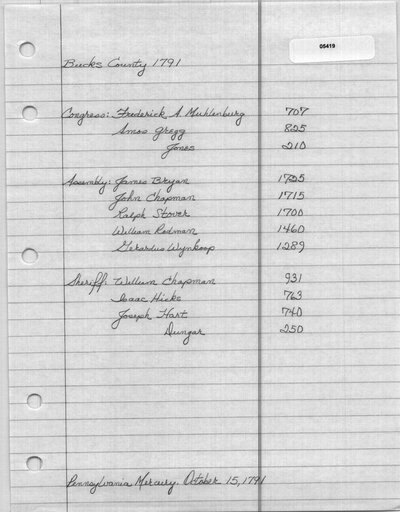 05419
Bucks County 1791
Congress: Frederick A. Muhlenburg 707
Amos Gregg 825
Jones 210
Assembly: James Bryan 1725
John Chapman 1715
Ralph Stover 1700
William Rodman 1460
Gerardus Wynkoop 1289
Sheriff: William Chapman 931
Isaac Hicks 763
Joseph Hart 740
Dungan 250
Pennsylvania Mercury. October 15, 1791